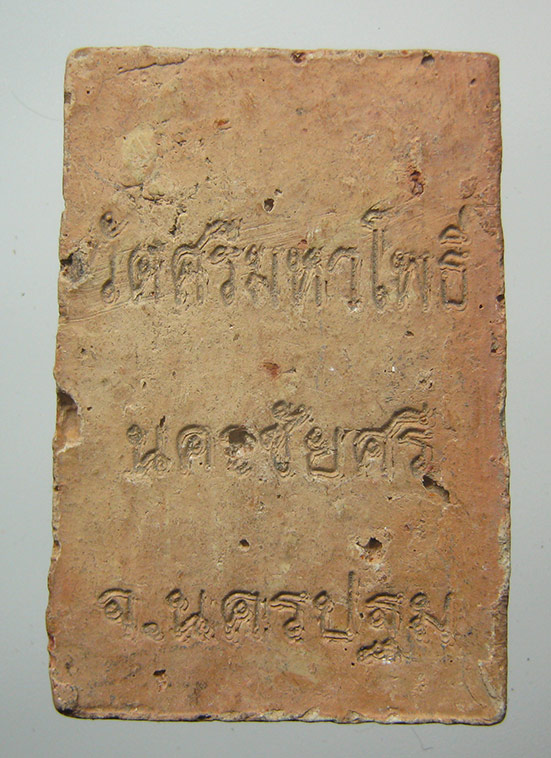 วัดศรีมหาโพธิ
นครชัยศรี
จ.นครปฐม